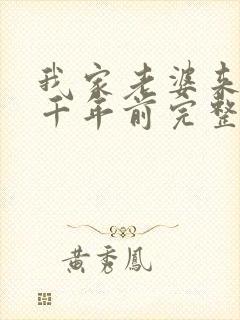 我家老婆来
千年前完整
黄秀凤